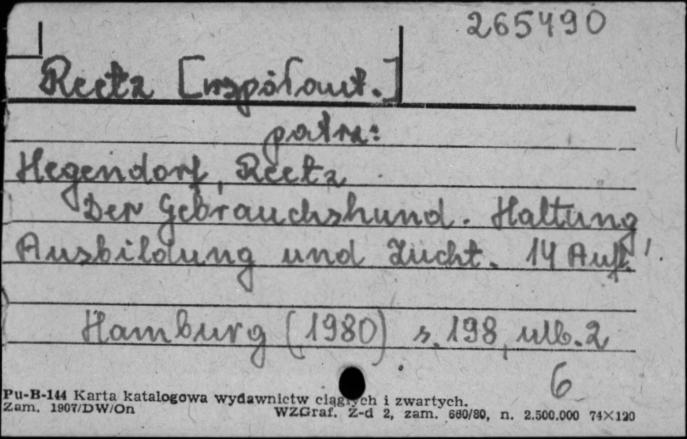 265490
Reetz [współaut.]
patrz:
Hegendorf, Reetz
Der Gebrauchshund. Haltung,
Ausbildung und Zucht. 14 Aufl.
Hamburg (1980) s. 198, ulb. 2
6
Pu-B-144 Karta katalogowa wydawnictw ciągłych i zwartych.
Zam. 1907/DW/On WZGraf. Z-d 2, zam. 660/80, n. 2.500.000 74×120